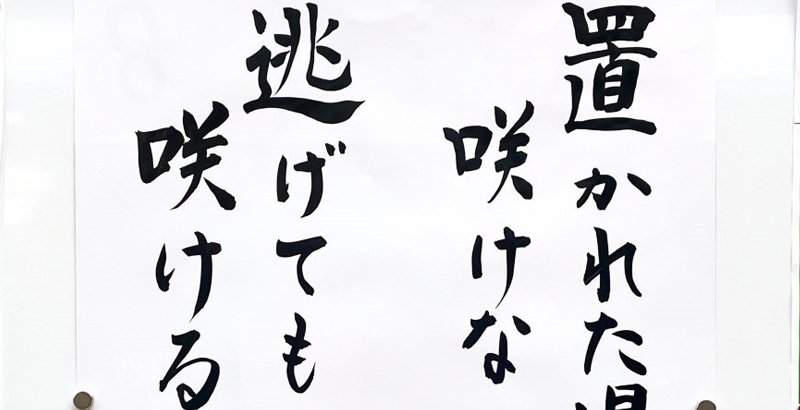 置かれた
咲けな
逃げても
咲ける